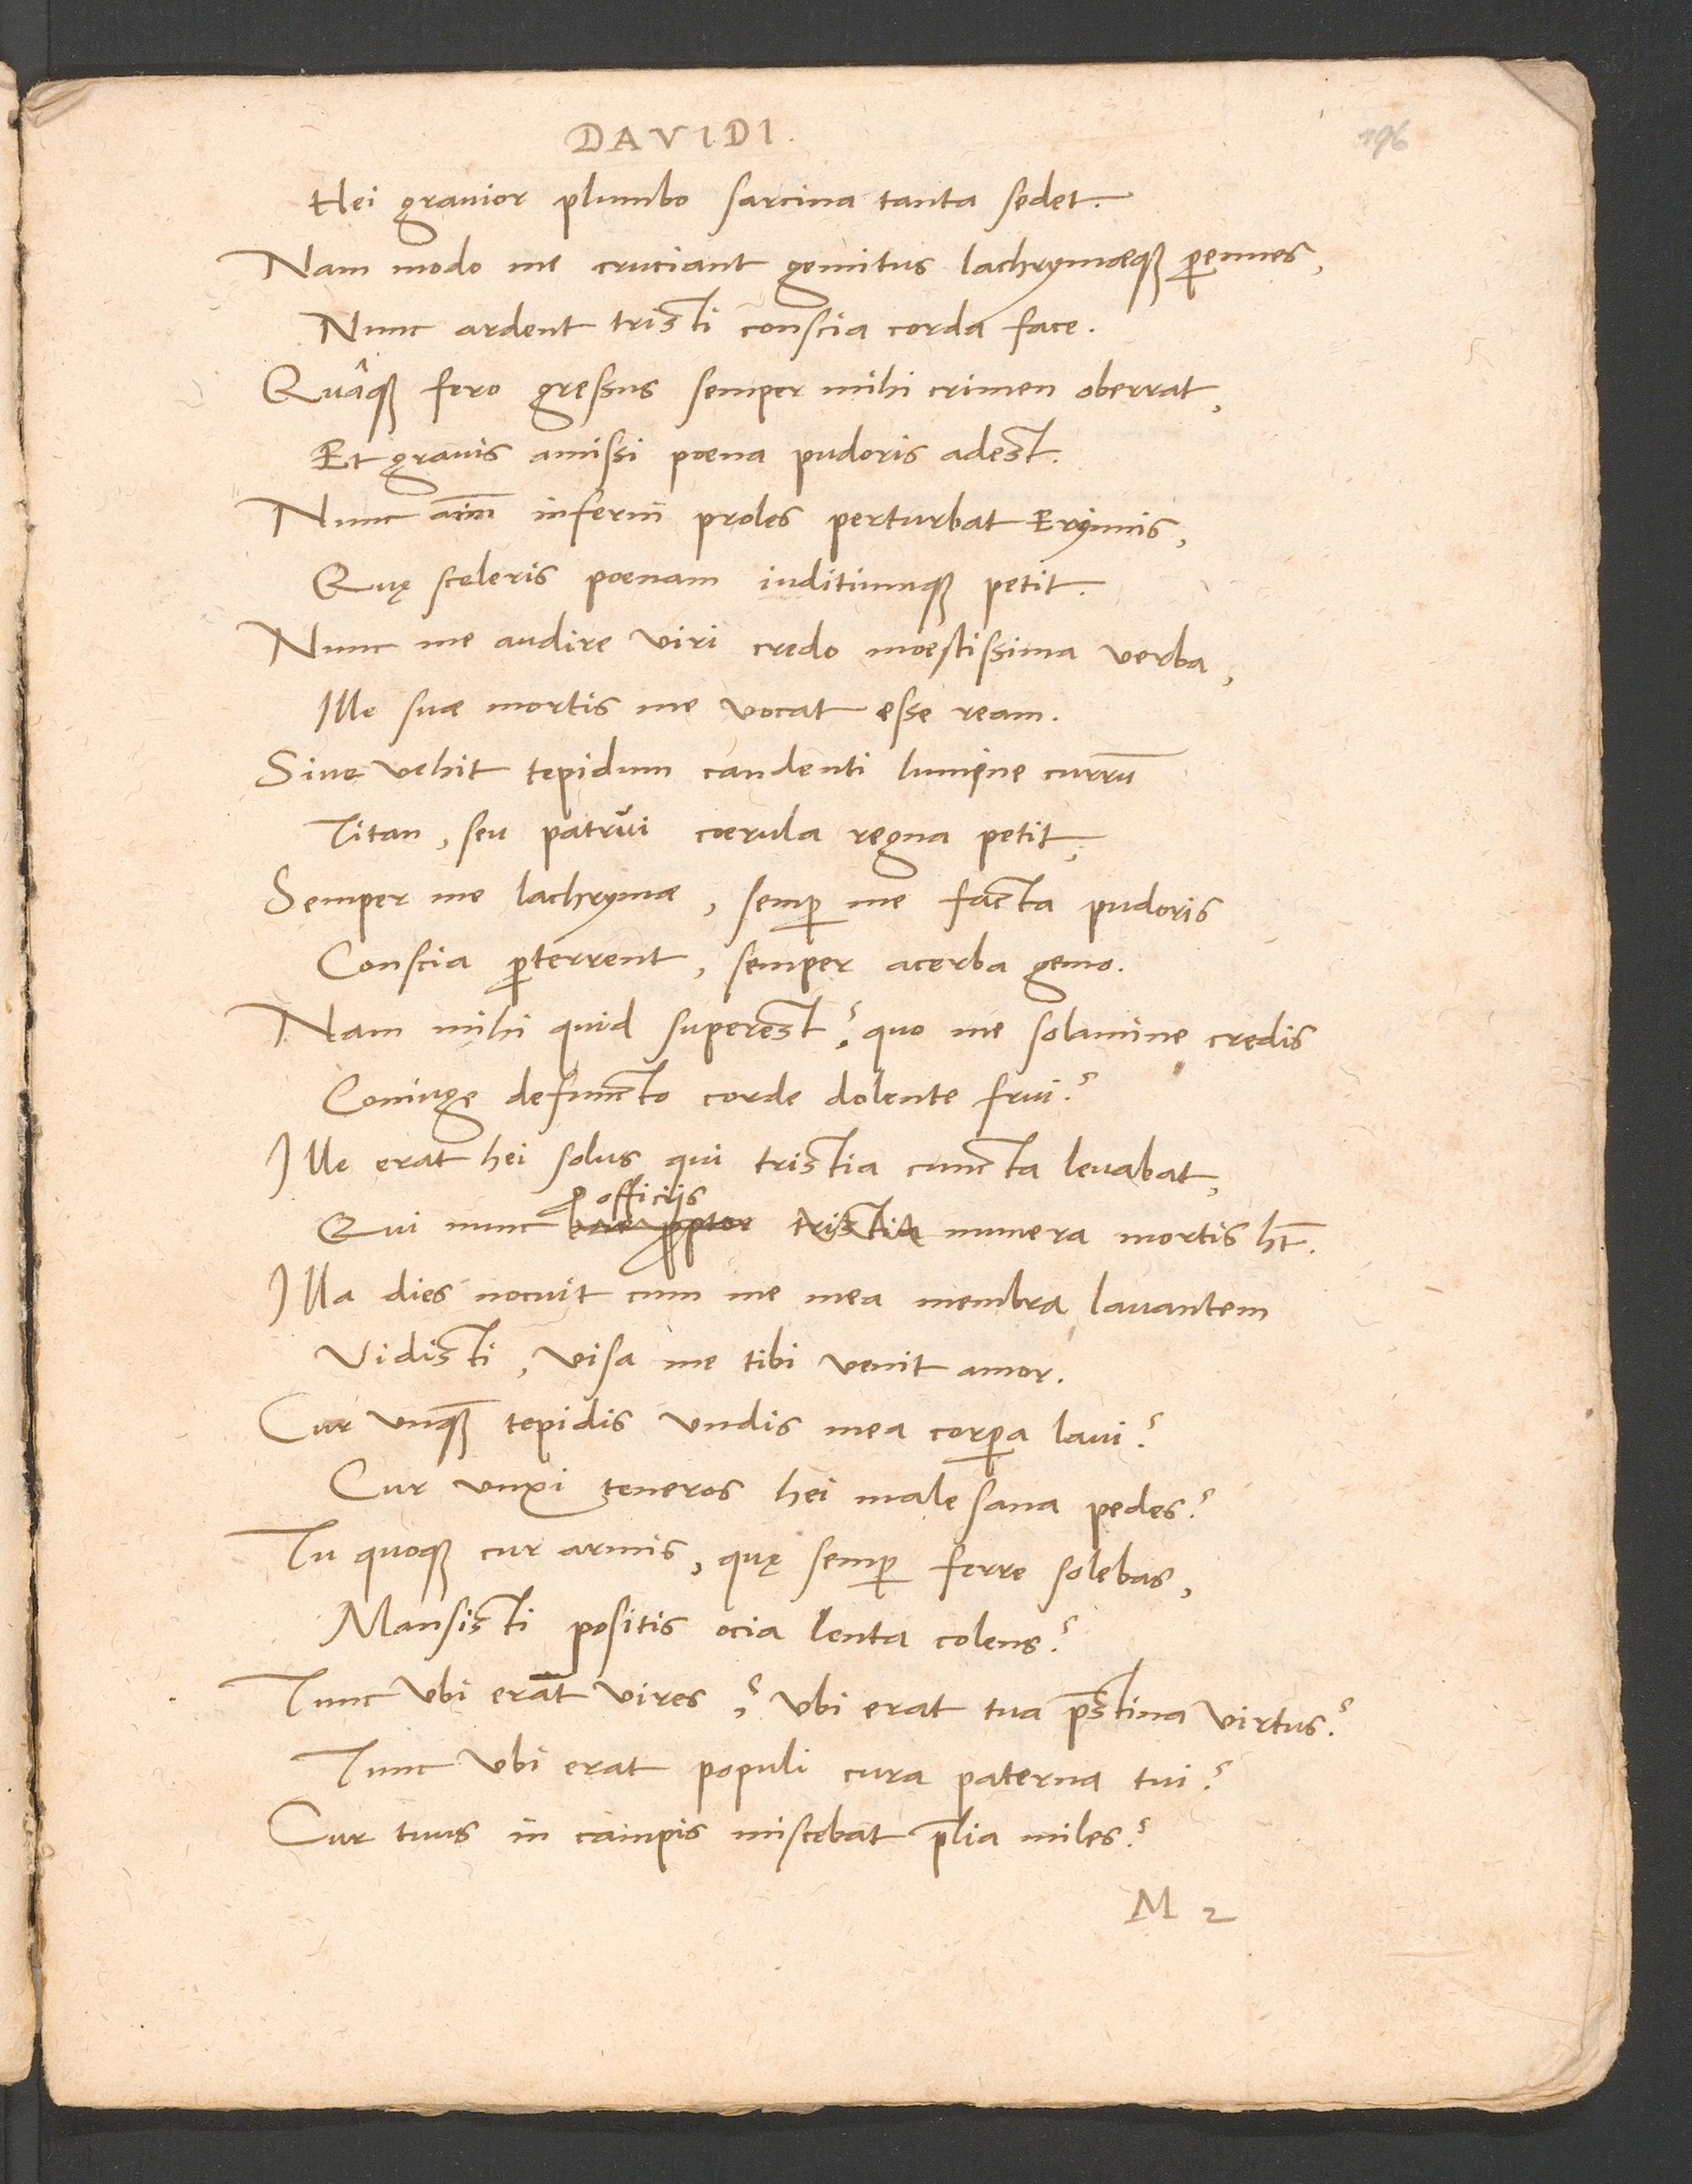 DAVIDI.
196
Hei grauior plumbo sarcina tanta sedet.
Nam modo me cruciant gemitus lachrymæqꝫ ꝑennes,
Nunc ardent tristi conscia corda face.
Quâqꝫ fero gressus semper mihi crimen oberrat,
Et grauis amissi pœna pudoris adest.
Nunc aīm inferni proles perturbat Erynnis,
Quę sceleris poenam iuditiumqꝫ petit.
Nunc me audire viri credo moestissima verba,
Ille suæ mortis me vocat esse ream.
Siue vehit tepidum candenti lumine currū
Titan, seu patrui cœrula regna petit,
Semper me lachrymæ, semꝑ me facta pudoris
Conscia ꝑterrent, semper acerba gemo.
Nam mihi quid superest? quo me solamine credis
Coniuge defuncto corde dolente frui?
Ille erat hei solus qui tristia cuncta leuabat,
ꝓ officiis
Qui nunc tristia munera mortis ht̄.
Illa dies nocuit cum me mea membra lauantem
Vidisti, visa me tibi venit amor.
Cur vnqꝫ̄ tepidis vndis mea corꝑa laui?
Cur vnxi teneros hei male sana pedes?
Tu quoqꝫ cur armis, quę semꝑ ferre solebas,
Mansisti positis ocia lenta colens?
Tunc vbi erāt vires? vbi erat tua p̄stina virtus?
Tunc vbi erat populi cura paterna tui?
Cur tuus in campis miscebat p̄lia miles?
M 2